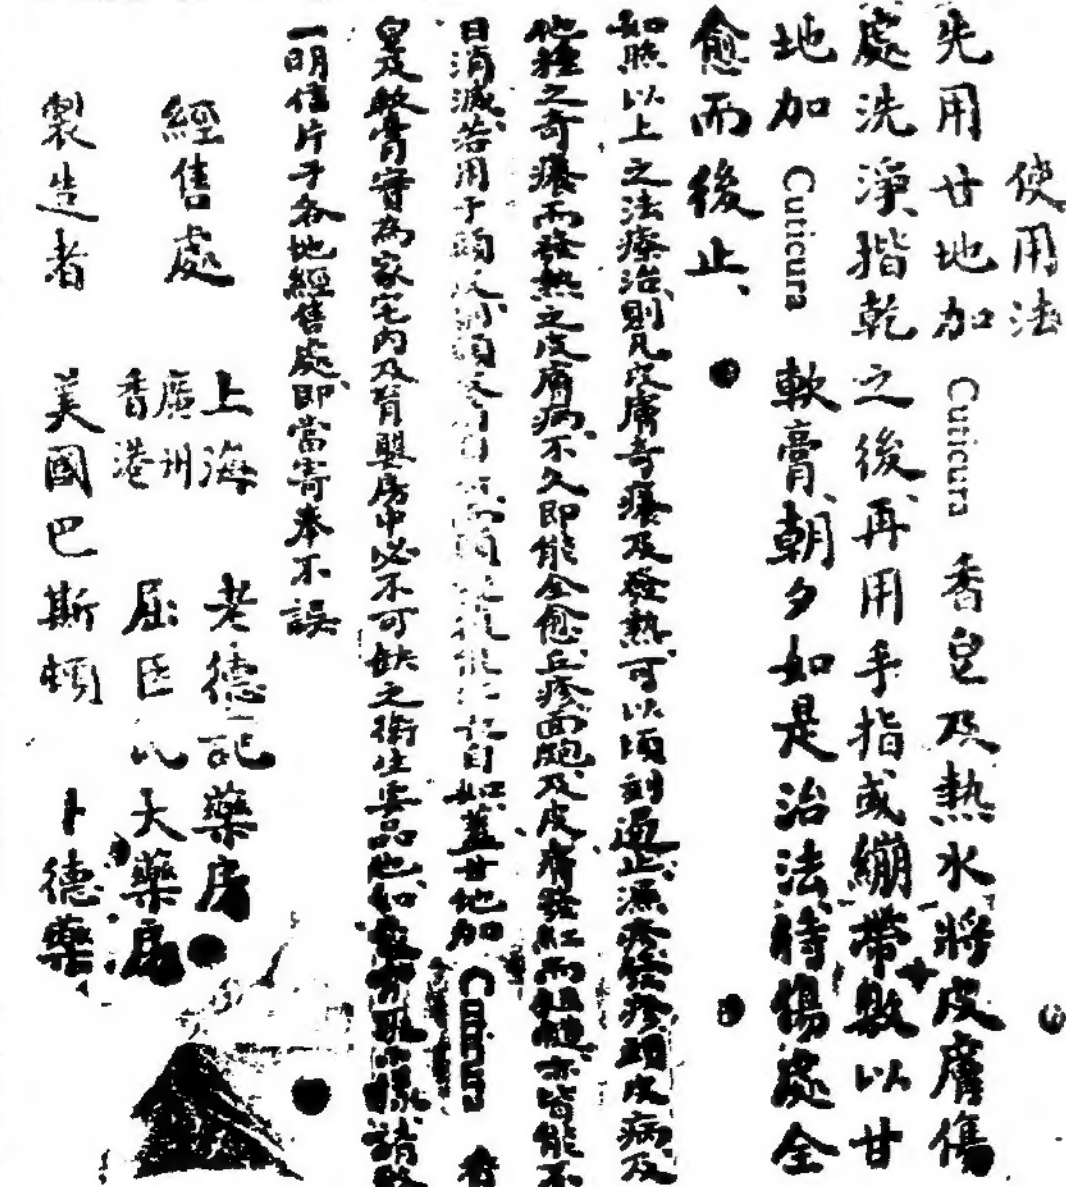 使用法
先用甘地加 Cuticura 香皂及熱水將皮膚傷
處洗淨揩乾之後、再用手指或繃帶敷以甘
地加 Cuticura 軟膏、朝夕如是治法、待傷處全
愈而後止、
如照以上之法療治、則凡皮膚奇癢及發熱、可以頃刻遏止、濕疹發疹頑皮病及
他種之奇癢而發熱之皮膚病、不久即能全愈、丘疹面皰及皮膚發紅而粗糙、亦皆能不
日消滅、若用于頭皮 自如、蓋甘地加 Cuticura 香
皂及軟膏實為家宅內及育嬰房中必不可缺之衛生要品也、如 樣、請致
一明信片于各地經售處、即當寄奉不誤
經售處
上海 老德記藥房
廣州
香港
屈臣氏大藥房
製造者 美國巴斯頓 卜德藥